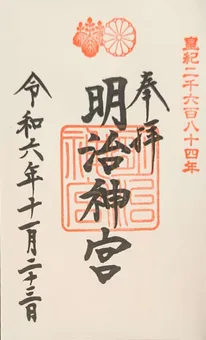 皇紀二千六百八十四年
奉拝
明治神宮
明治神宮
令和六年十一月二十三日